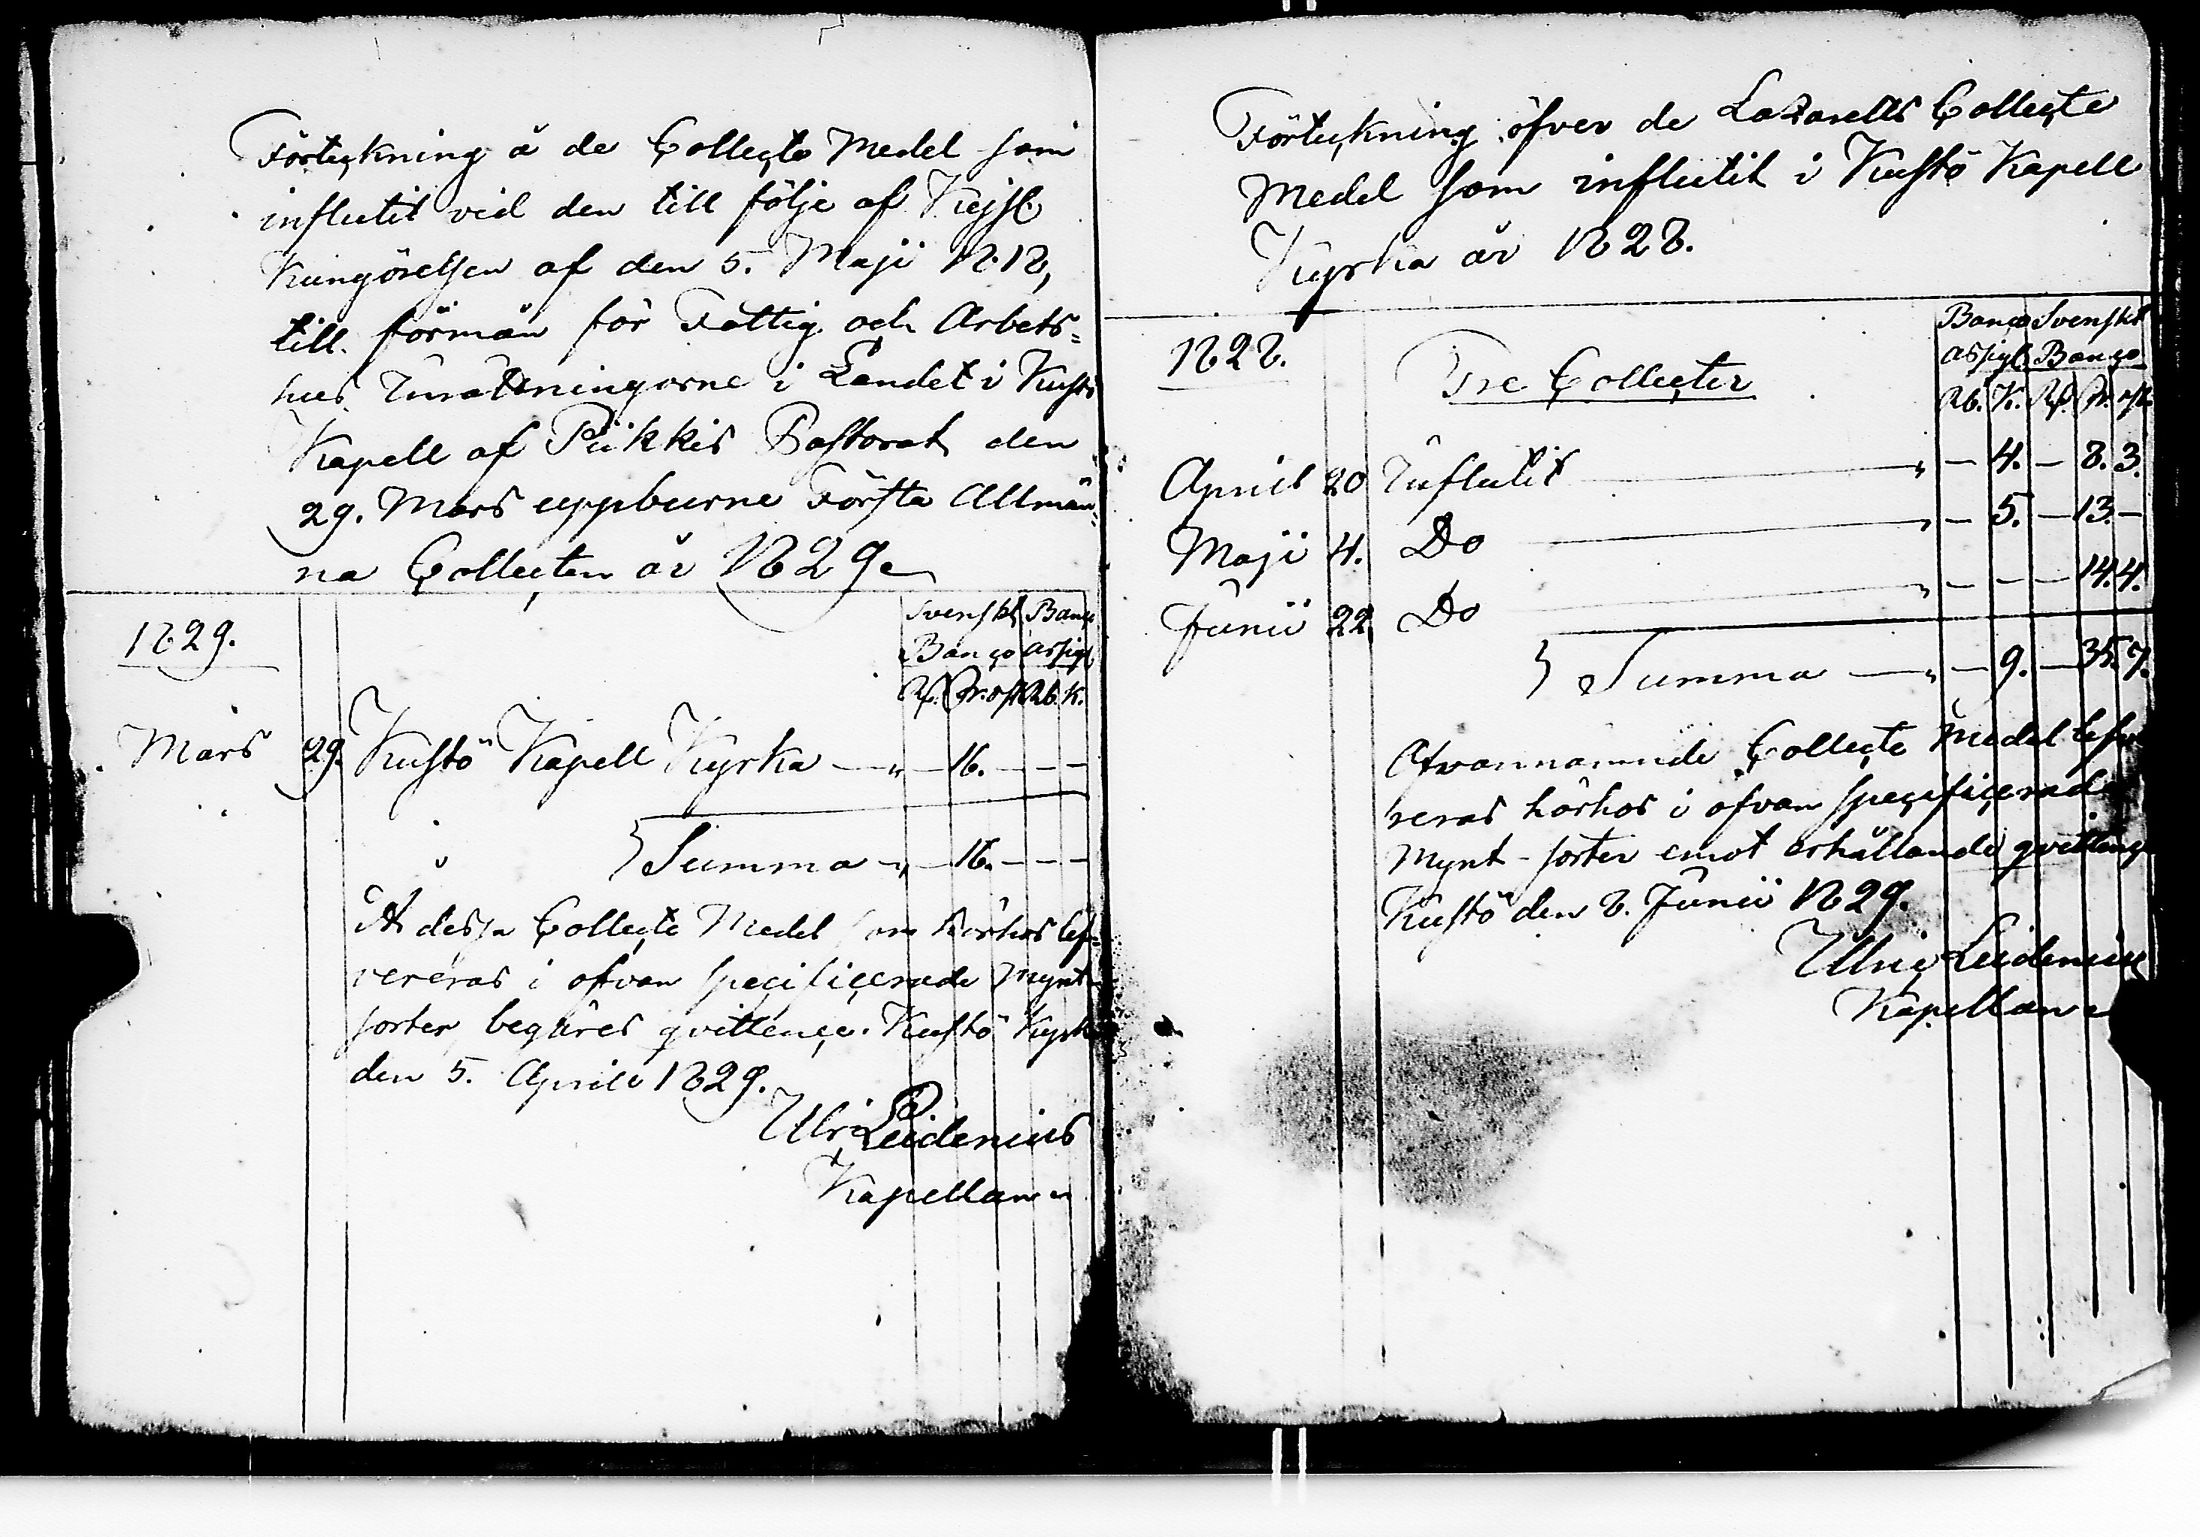 Förteckning å de Collecte Medel som
influtit vid den till följe af Kejsl.
Kungörelsen af den 5. Maji 1818,
till förmån för Fattig och Arbets=
hus Inrättningarne i Landet i Kustö
Kapell af Piikkis Pastorat den
29. Mars uppburne Första Allmän=
na Collecten år 1829.
Svenskt Banco
1829. Banco Assign.
Rd. Gr. rst. Rb. K.
Mars 29. Kustö Kapell Kyrka — „ — 16. — — —
Summa — „ — 16. — — —
Å dessa Collecte Medel som härhos lef=
vereras i ofvan specificerade Mynt=
sorter begäres qvittence. Kustö Kyrka
den 5. April 1829.
Ulric Leidenius
Kapellan
Förteckning öfver de Lazaretts Collecte
Medel som influtit i Kustö Kapell
Kyrka år 1828.
Banco Svenskt
1828. Tre Collecter Assign. Banco
Rb. K. Rd. Gr. rst.
April 20 Influtit — „ — 4. — 8. 3.
Maji 4. Do — „ — 5. — 13. —
Junii 22. Do — „ — — — 14. 4.
Summa — „ — 9. — 35. 7.
Ofvannämnde Collecte Medel lefve
reras härhos i ofvan specificerade
Mynt-sorter emot erhållande qvittence
Kustö den 8. Junii 1829.
Ulric Leidenius
Kapellan